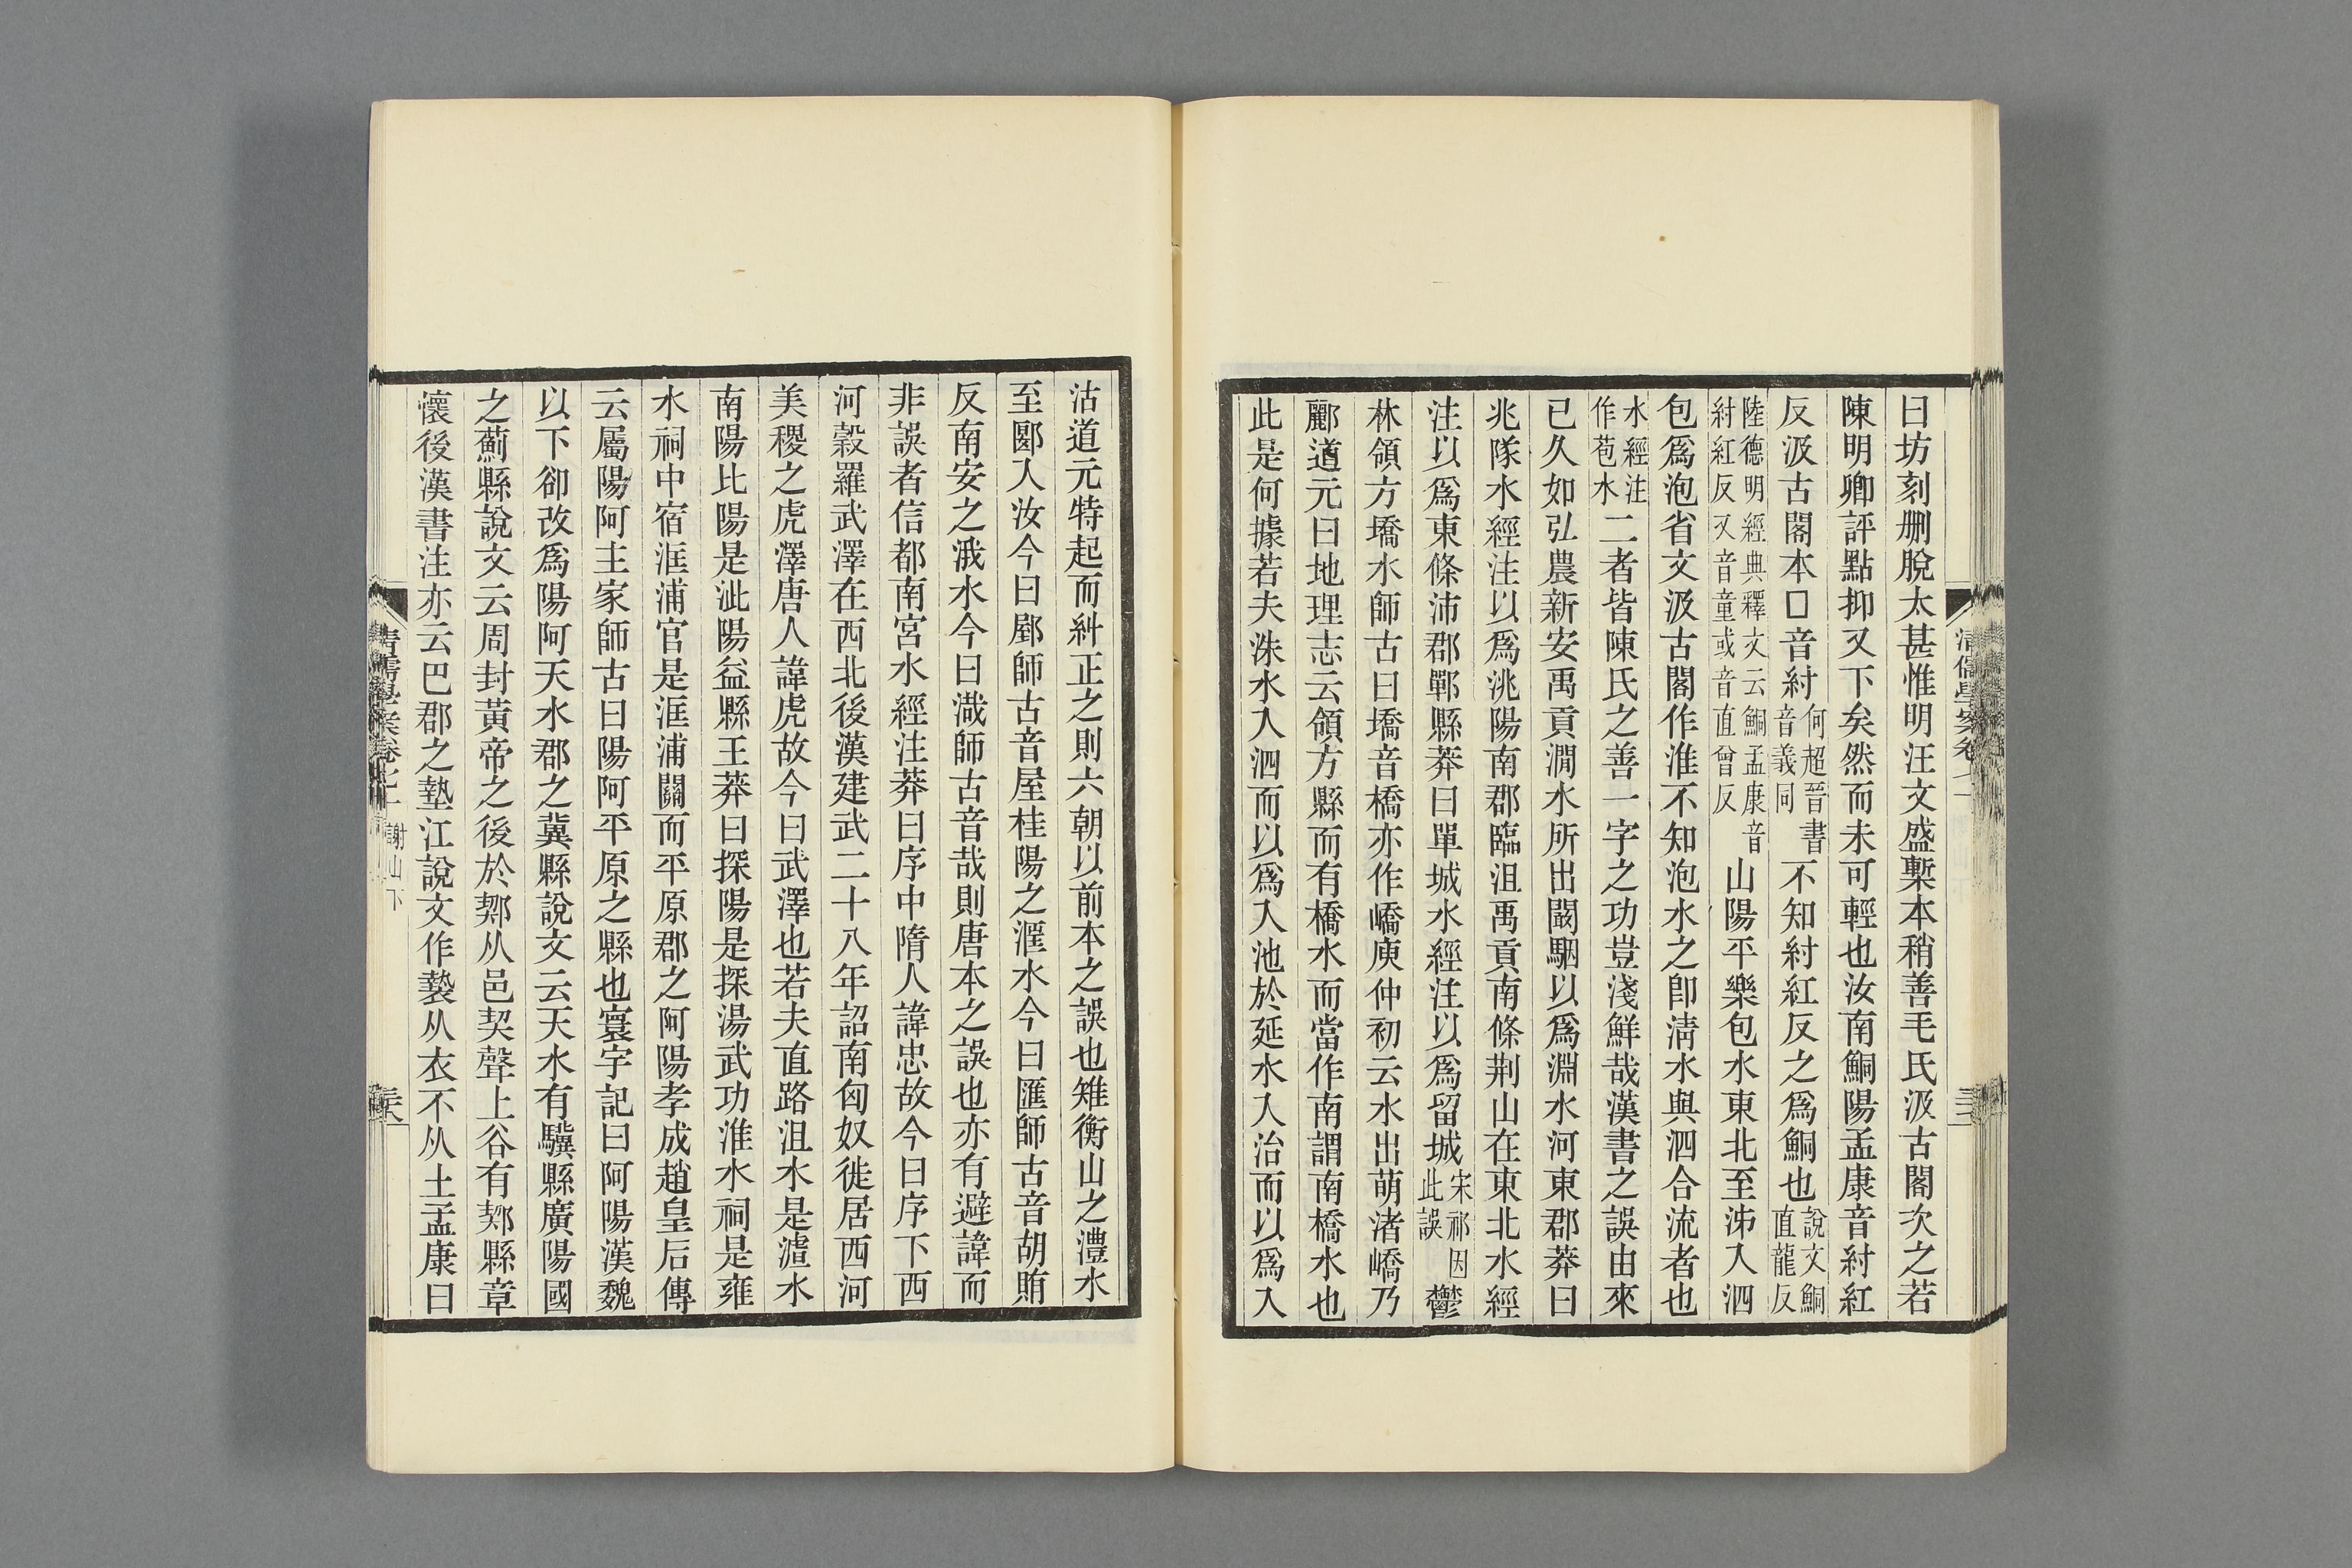 曰坊刻刪脫太甚惟明汪文盛槧本稍善毛氏汲古閣次之若
陳明卿評點抑又下矣然而未可輕也汝南鮦陽孟康音紂紅
反汲古閣本□音紂何超晉書音義同不知紂紅反之爲鮦也說文鮦直龍反
陸德明經典釋文云鮦孟康音紂紅反又音童或音直曾反山陽平樂包水東北至沛入泗
包爲泡省文汲古閣作淮不知泡水之卽淸水與泗合流者也
水經注作苞水二者皆陳氏之善一字之功豈淺鮮哉漢書之誤由來
已久如弘農新安禹貢澗水所出闞駰以爲淵水河東郡莽曰
兆隊水經注以爲洮陽南郡臨沮禹貢南條荆山在東北水經
注以爲東條沛郡鄲縣莽曰單城水經注以爲留城宋祁因此誤鬱
林領方墧水師古曰墧音橋亦作嶠庾仲初云水出萌渚嶠乃
酈道元曰地理志云領方縣而有橋水而當作南謂南橋水也
此是何據若夫洙水入泗而以爲入池於延水入治而以爲入
沽道元特起而糾正之則六朝以前本之誤也雉衡山之灃水
至郾入汝今曰郾師古音屋桂陽之滙水今曰匯師古音胡賄
反南安之涐水今曰渽師古音哉則唐本之誤也亦有避諱而
非誤者信都南宮水經注莽曰序中隋人諱忠故今曰序下西
河穀羅武澤在西北後漢建武二十八年詔南匈奴徙居西河
美稷之虎澤唐人諱虎故今曰武澤也若夫直路沮水是瀘水
南陽比陽是泚陽益縣王莽曰探陽是探湯武功淮水祠是雍
水祠中宿洭浦官是洭浦關而平原郡之阿陽孝成趙皇后傳
云屬陽阿主家師古曰陽阿平原之縣也寰宇記曰阿陽漢魏
以下卻改爲陽阿天水郡之冀縣說文云天水有驥縣廣陽國
之薊縣說文云周封黃帝之後於鄚从邑契聲上谷有鄚縣章
懷後漢書注亦云巴郡之墊江說文作褺从衣不从土孟康曰
淸儒學案卷七十一 謝山下